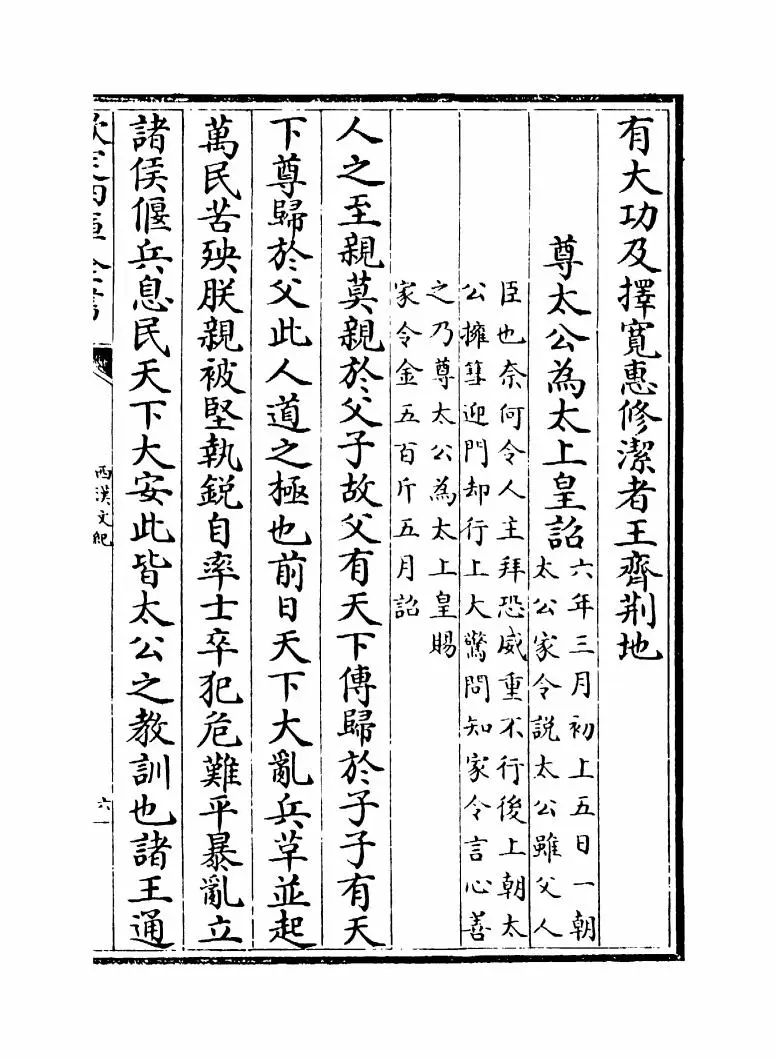 有大功及擇寛惠修潔者王齊荆地
尊太公為太上皇詔
六年三月初上五日一朝
太公家令説太公雖父人
臣也奈何令人主拜恐威重不行後上朝太
公擁篲迎門却行上大驚問知家令言心善
之乃尊太公為太上皇賜
家令金五百斤五月詔
人之至親莫親於父子故父有天下傳歸於子子有天
下尊歸於父此人道之極也前日天下大亂兵草並起
萬民苦殃朕親被堅執鋭自率士卒犯危難平暴亂立
諸侯偃兵息民天下大安此皆太公之教訓也諸王通
欽定四庫全書
西漢文紀
六